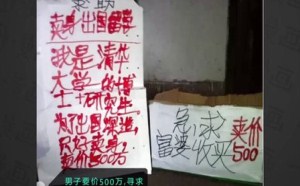 求助
卖身出国留学
我是清华
大学的博
士+研究生,
为了出国深造,
只好卖身!
卖价500万
急!求
富婆收买
卖价
500
男子要价500万,寻求